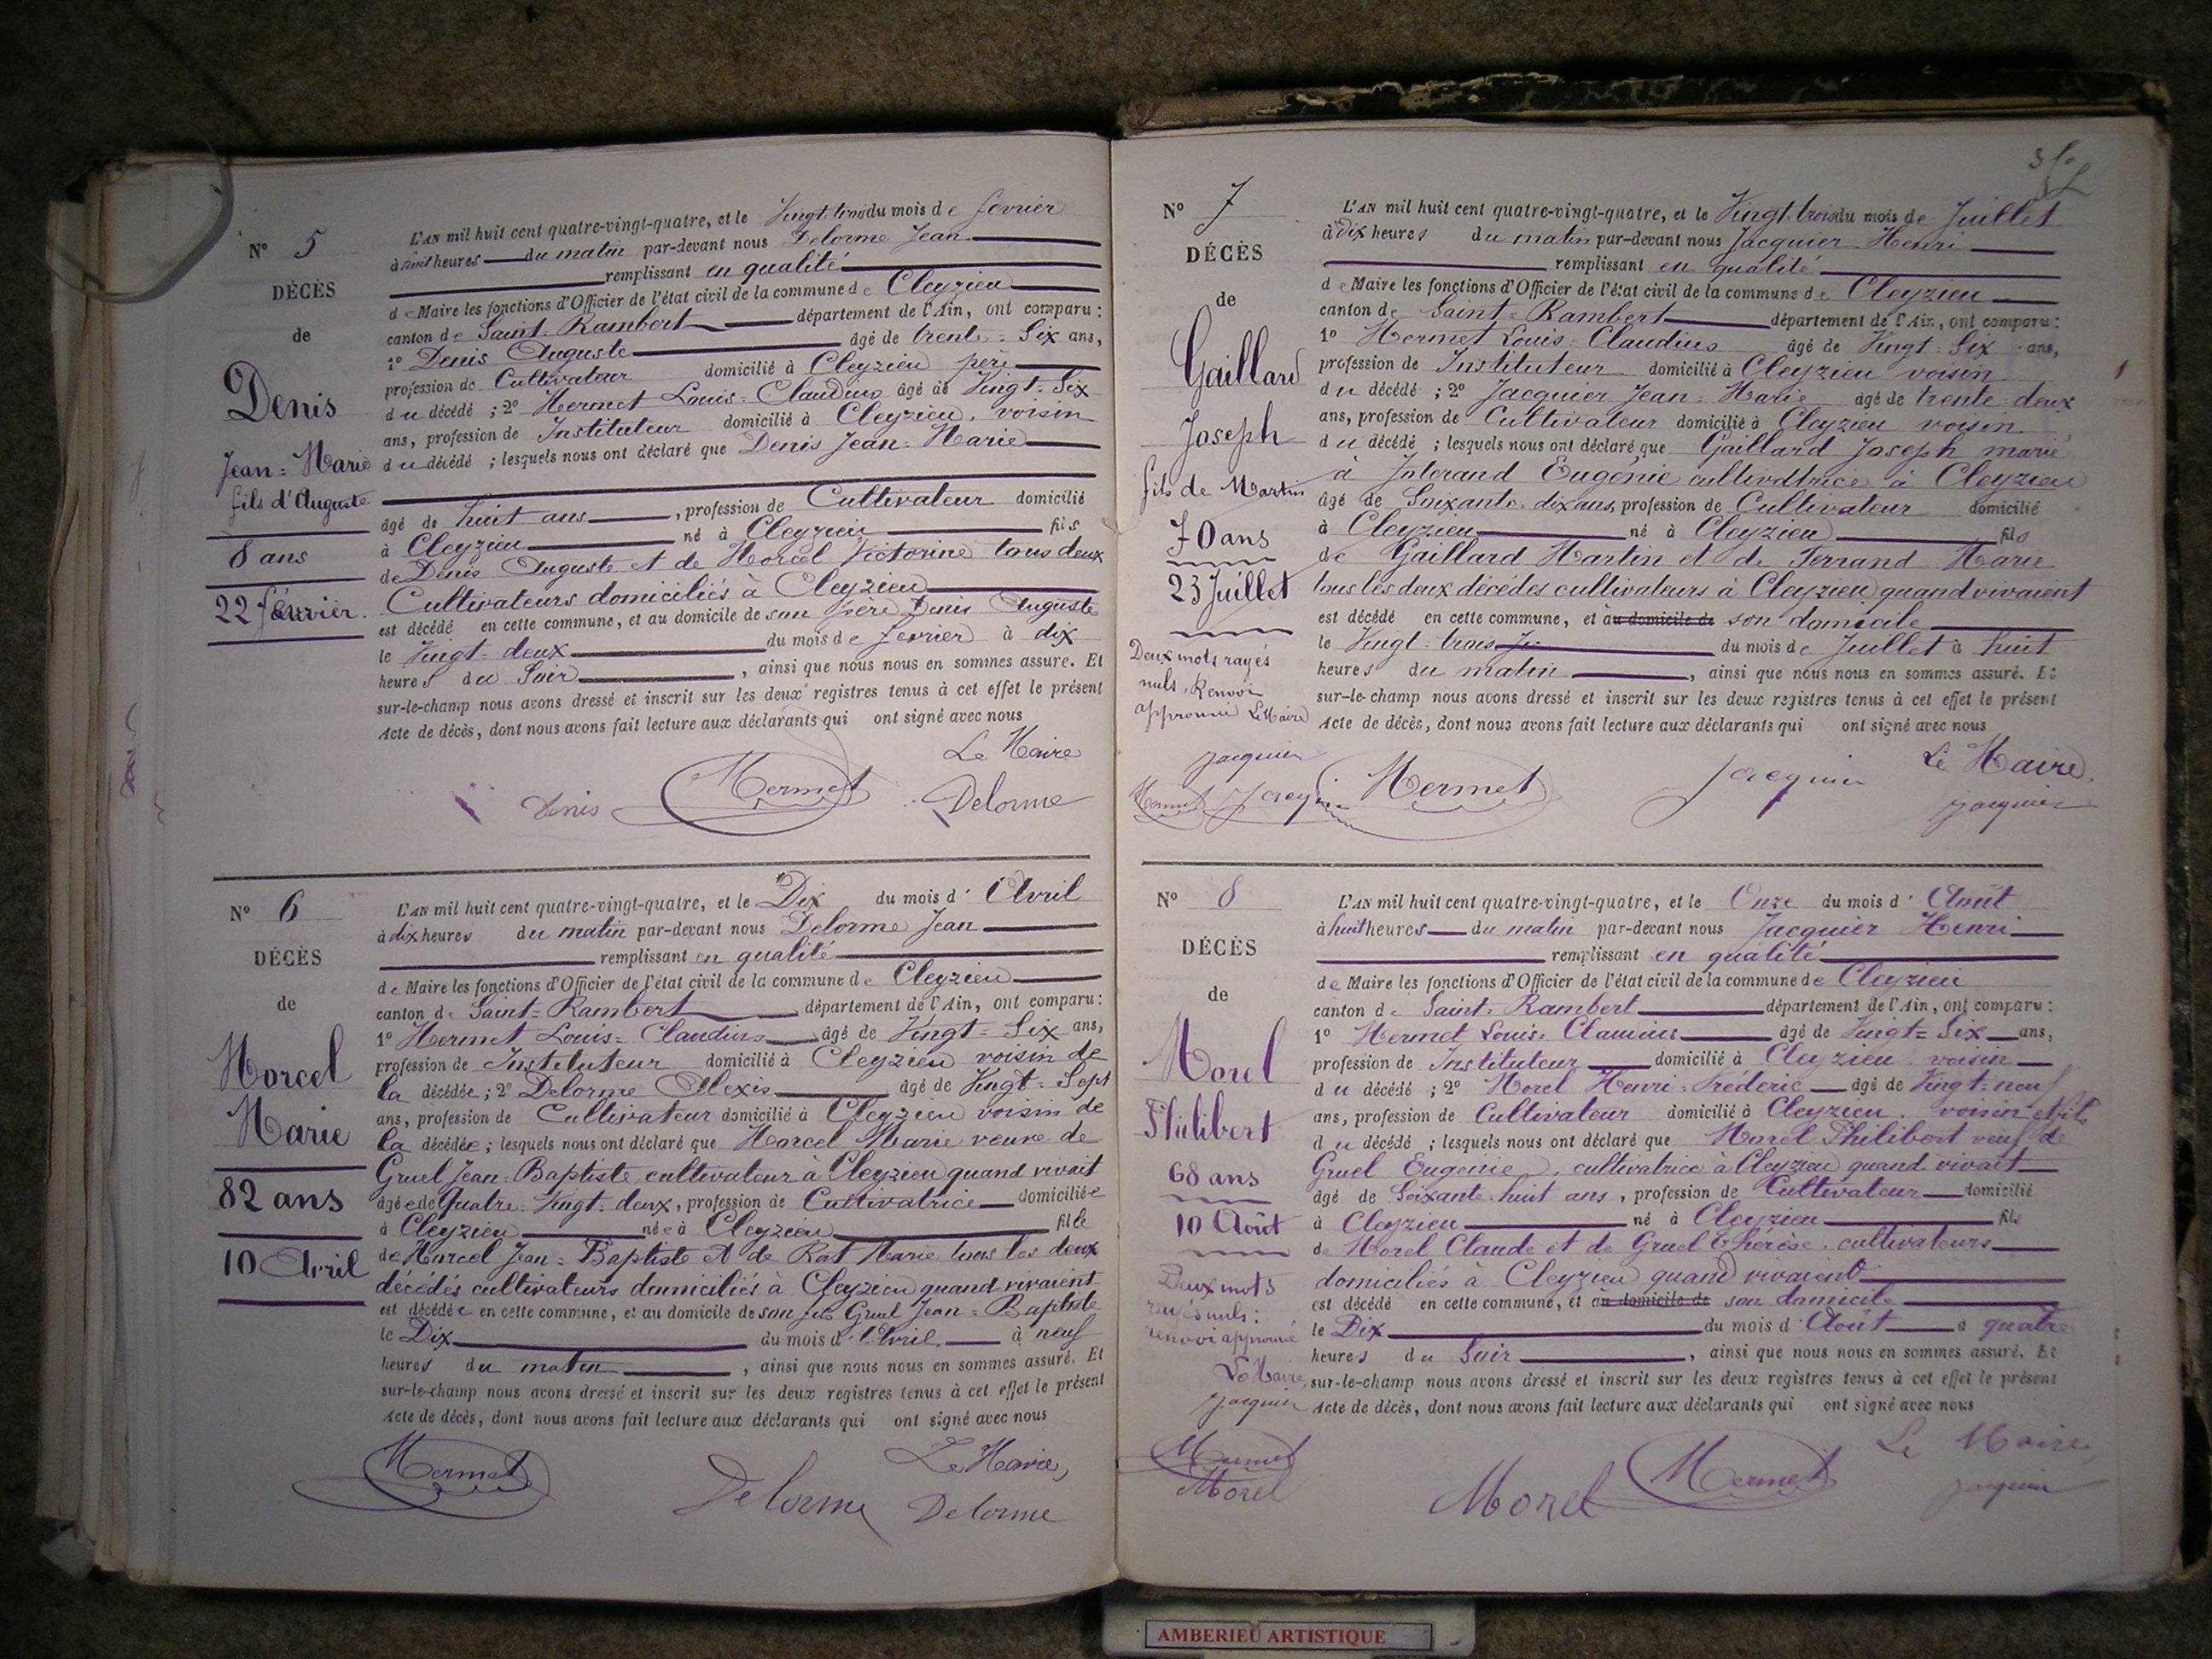 N° 5
DÉCÈS
de
Denis
Jean=Marie
fils d'Auguste
8 ans
22 février.
L'AN mil huit cent quatre-vingt-quatre, et le Vingt-trois du mois de février
à huit heures du matin par-devant nous Delorme Jean
remplissant en qualité
de Maire les fonctions d'Officier de l'état civil de la commune de Cleyzieu
canton de Saint=Rambert département de l'Ain, ont comparu :
1° Denis Auguste âgé de trente=Six ans,
profession de Cultivateur domicilié à Cleyzieu père
du décédé ; 2° Mermet Louis=Claudius âgé de Vingt=Six
ans, profession de Instituteur domicilié à Cleyzieu, voisin
du décédé ; lesquels nous ont déclaré que Denis Jean=Marie
âgé de huit ans, profession de Cultivateur domicilié
à Cleyzieu né à Cleyzieu fils
de Denis Auguste et de Morcel Victorine tous deux
Cultivateurs domiciliés à Cleyzieu
est décédé en cette commune, et au domicile de son père Denis Auguste
le Vingt=deux du mois de février à dix
heures du Soir, ainsi que nous nous en sommes assuré. Et
sur-le-champ nous avons dressé et inscrit sur les deux registres tenus à cet effet le présent
Acte de décès, dont nous avons fait lecture aux déclarants qui ont signé avec nous
Le Maire
Denis Mermet Delorme
N° 6
DÉCÈS
de
Morcel
Marie
82 ans
10 Avril
L'AN mil huit cent quatre-vingt-quatre, et le Dix du mois d'Avril
à dix heures du matin par-devant nous Delorme Jean
remplissant en qualité
de Maire les fonctions d'Officier de l'état civil de la commune de Cleyzieu
canton de Saint=Rambert département de l'Ain, ont comparu :
1° Mermet Louis=Claudius âgé de Vingt=Six ans,
profession de Instituteur domicilié à Cleyzieu voisin de
la décédée ; 2° Delorme Alexis âgé de Vingt=Sept
ans, profession de Cultivateur domicilié à Cleyzieu voisin de
la décédée ; lesquels nous ont déclaré que Morcel Marie veuve de
Gruel Jean=Baptiste, cultivateur à Cleyzieu quand vivait
âgée de Quatre=Vingt=deux, profession de Cultivatrice domiciliée
à Cleyzieu née à Cleyzieu fille
de Morcel Jean=Baptiste et de Rat Marie tous les deux
décédés cultivateurs domiciliés à Cleyzieu quand vivaient
est décédée en cette commune, et au domicile de son fils Gruel Jean=Baptiste
le Dix du mois d'Avril à neuf
heures du matin, ainsi que nous nous en sommes assuré. Et
sur-le-champ nous avons dressé et inscrit sur les deux registres tenus à cet effet le présent
Acte de décès, dont nous avons fait lecture aux déclarants qui ont signé avec nous
Le Maire,
Mermet Delorme Delorme
N° 7
DÉCÈS
de
Gaillard
Joseph
fils de Martin
70 ans
23 Juillet
Deux mots rayés
nuls, Renvoi
approuvé Le Maire
Jacquier
Mermet Jacquier
L'AN mil huit cent quatre-vingt-quatre, et le Vingt-trois du mois de Juillet
à dix heures du matin par-devant nous Jacquier Henri
remplissant en qualité
de Maire les fonctions d'Officier de l'état civil de la commune de Cleyzieu
canton de Saint=Rambert département de l'Ain, ont comparu :
1° Mermet Louis=Claudius âgé de Vingt=Six ans,
profession de Instituteur domicilié à Cleyzieu voisin
du décédé ; 2° Jacquier Jean=Marie âgé de trente=deux
ans, profession de Cultivateur domicilié à Cleyzieu voisin
du décédé ; lesquels nous ont déclaré que Gaillard Joseph marié
à Eugénie cultivatrice à Cleyzieu
âgé de Soixante-dix ans, profession de Cultivateur domicilié
à Cleyzieu né à Cleyzieu fils
de Gaillard Martin et de Ferrand Marie
tous les deux décédés cultivateurs à Cleyzieu quand vivaient
est décédé en cette commune, et au domicile de son domicile
le Vingt-trois du mois de Juillet à huit
heures du matin, ainsi que nous nous en sommes assuré. Et
sur-le-champ nous avons dressé et inscrit sur les deux registres tenus à cet effet le présent
Acte de décès, dont nous avons fait lecture aux déclarants qui ont signé avec nous
Le Maire.
Mermet Jacquier Jacquier
N° 8
DÉCÈS
de
Morel
Philibert
68 ans
10 Août
Deux mots
rayés nuls :
renvoi approuvé
Le Maire
Jacquier
Mermet
Morel
L'AN mil huit cent quatre-vingt-quatre, et le Onze du mois d'Août
à huit heures du matin par-devant nous Jacquier Henri
remplissant en qualité
de Maire les fonctions d'Officier de l'état civil de la commune de Cleyzieu
canton de Saint=Rambert département de l'Ain, ont comparu :
1° Mermet Louis Claudius âgé de Vingt=Six ans,
profession de Instituteur domicilié à Cleyzieu voisin
du décédé ; 2° Morel Henri=Fréderic âgé de Vingt=neuf
ans, profession de Cultivateur domicilié à Cleyzieu, voisin et fils
du décédé ; lesquels nous ont déclaré que Morel Philibert veuf de
Gruel Eugenie, cultivatrice à Cleyzieu quand vivait
âgé de Soixante-huit ans, profession de Cultivateur domicilié
à Cleyzieu né à Cleyzieu fils
de Morel Claude et de Gruel Thérèse, cultivateurs
domiciliés à Cleyzieu quand vivaient
est décédé en cette commune, et au domicile de son domicile
le Dix du mois d'Août à quatre
heures du Soir, ainsi que nous nous en sommes assuré. Et
sur-le-champ nous avons dressé et inscrit sur les deux registres tenus à cet effet le présent
Acte de décès, dont nous avons fait lecture aux déclarants qui ont signé avec nous
Le Maire,
Morel Mermet Jacquier
AMBERIEU ARTISTIQUE